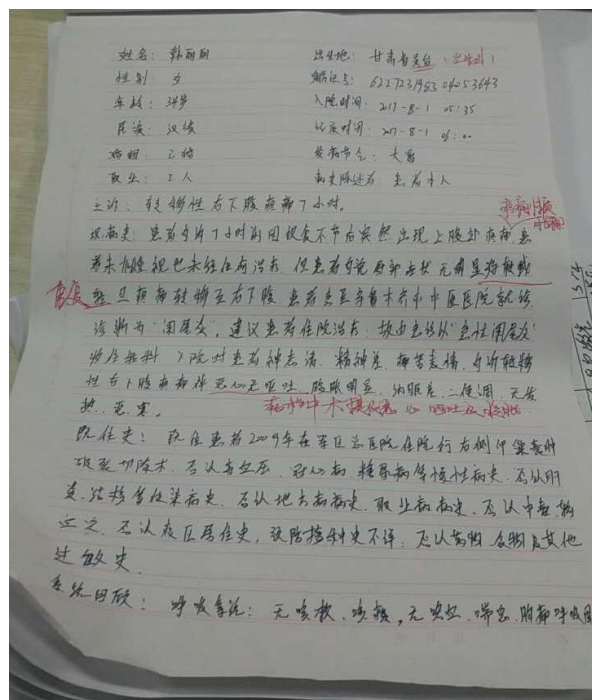 姓名：韩丽丽 出生地：甘肃省灵台（出生地）
性别：女
年龄：34岁 入院时间：2017-8-1 05:35
民族：汉族 记录时间：2017-8-1 06:00
婚姻：已婚 发病节气：大暑
职业：工人 病史陈述者：患者本人
主诉：转移性右下腹疼痛7小时。
现病史：患者自诉7小时前因饮食不节后突然出现上腹部疼痛，患
者未怕重视也未经任何治疗，但患者自觉局部症状无明显
且疼痛转移至右下腹，患者去至乌鲁木齐市中医医院就诊
诊断为"阑尾炎"，建议患者住院治疗，故由急诊以"急性阑尾炎"
收住我科，入院时患者神志清，精神差，痛苦表情，自诉转移
性右下腹疼痛伴恶心无呕吐，腹胀明显，纳眠差，二便调，无发
热、恶寒。
既往史：既往患者2009年在军区总医院住院行右侧卵巢囊肿
破裂切除术，否认高血压、冠心病、糖尿病等慢性病史，否认肝
炎、结核等传染病史，否认地方病病史、职业病病史，否认中毒
史，否认疫区居住史，预防接种史不详，否认药物、食物及其他
过敏史。
系统回顾：呼吸系统：无咳嗽、咳痰，无咳血、喘息、胸痛、呼吸困